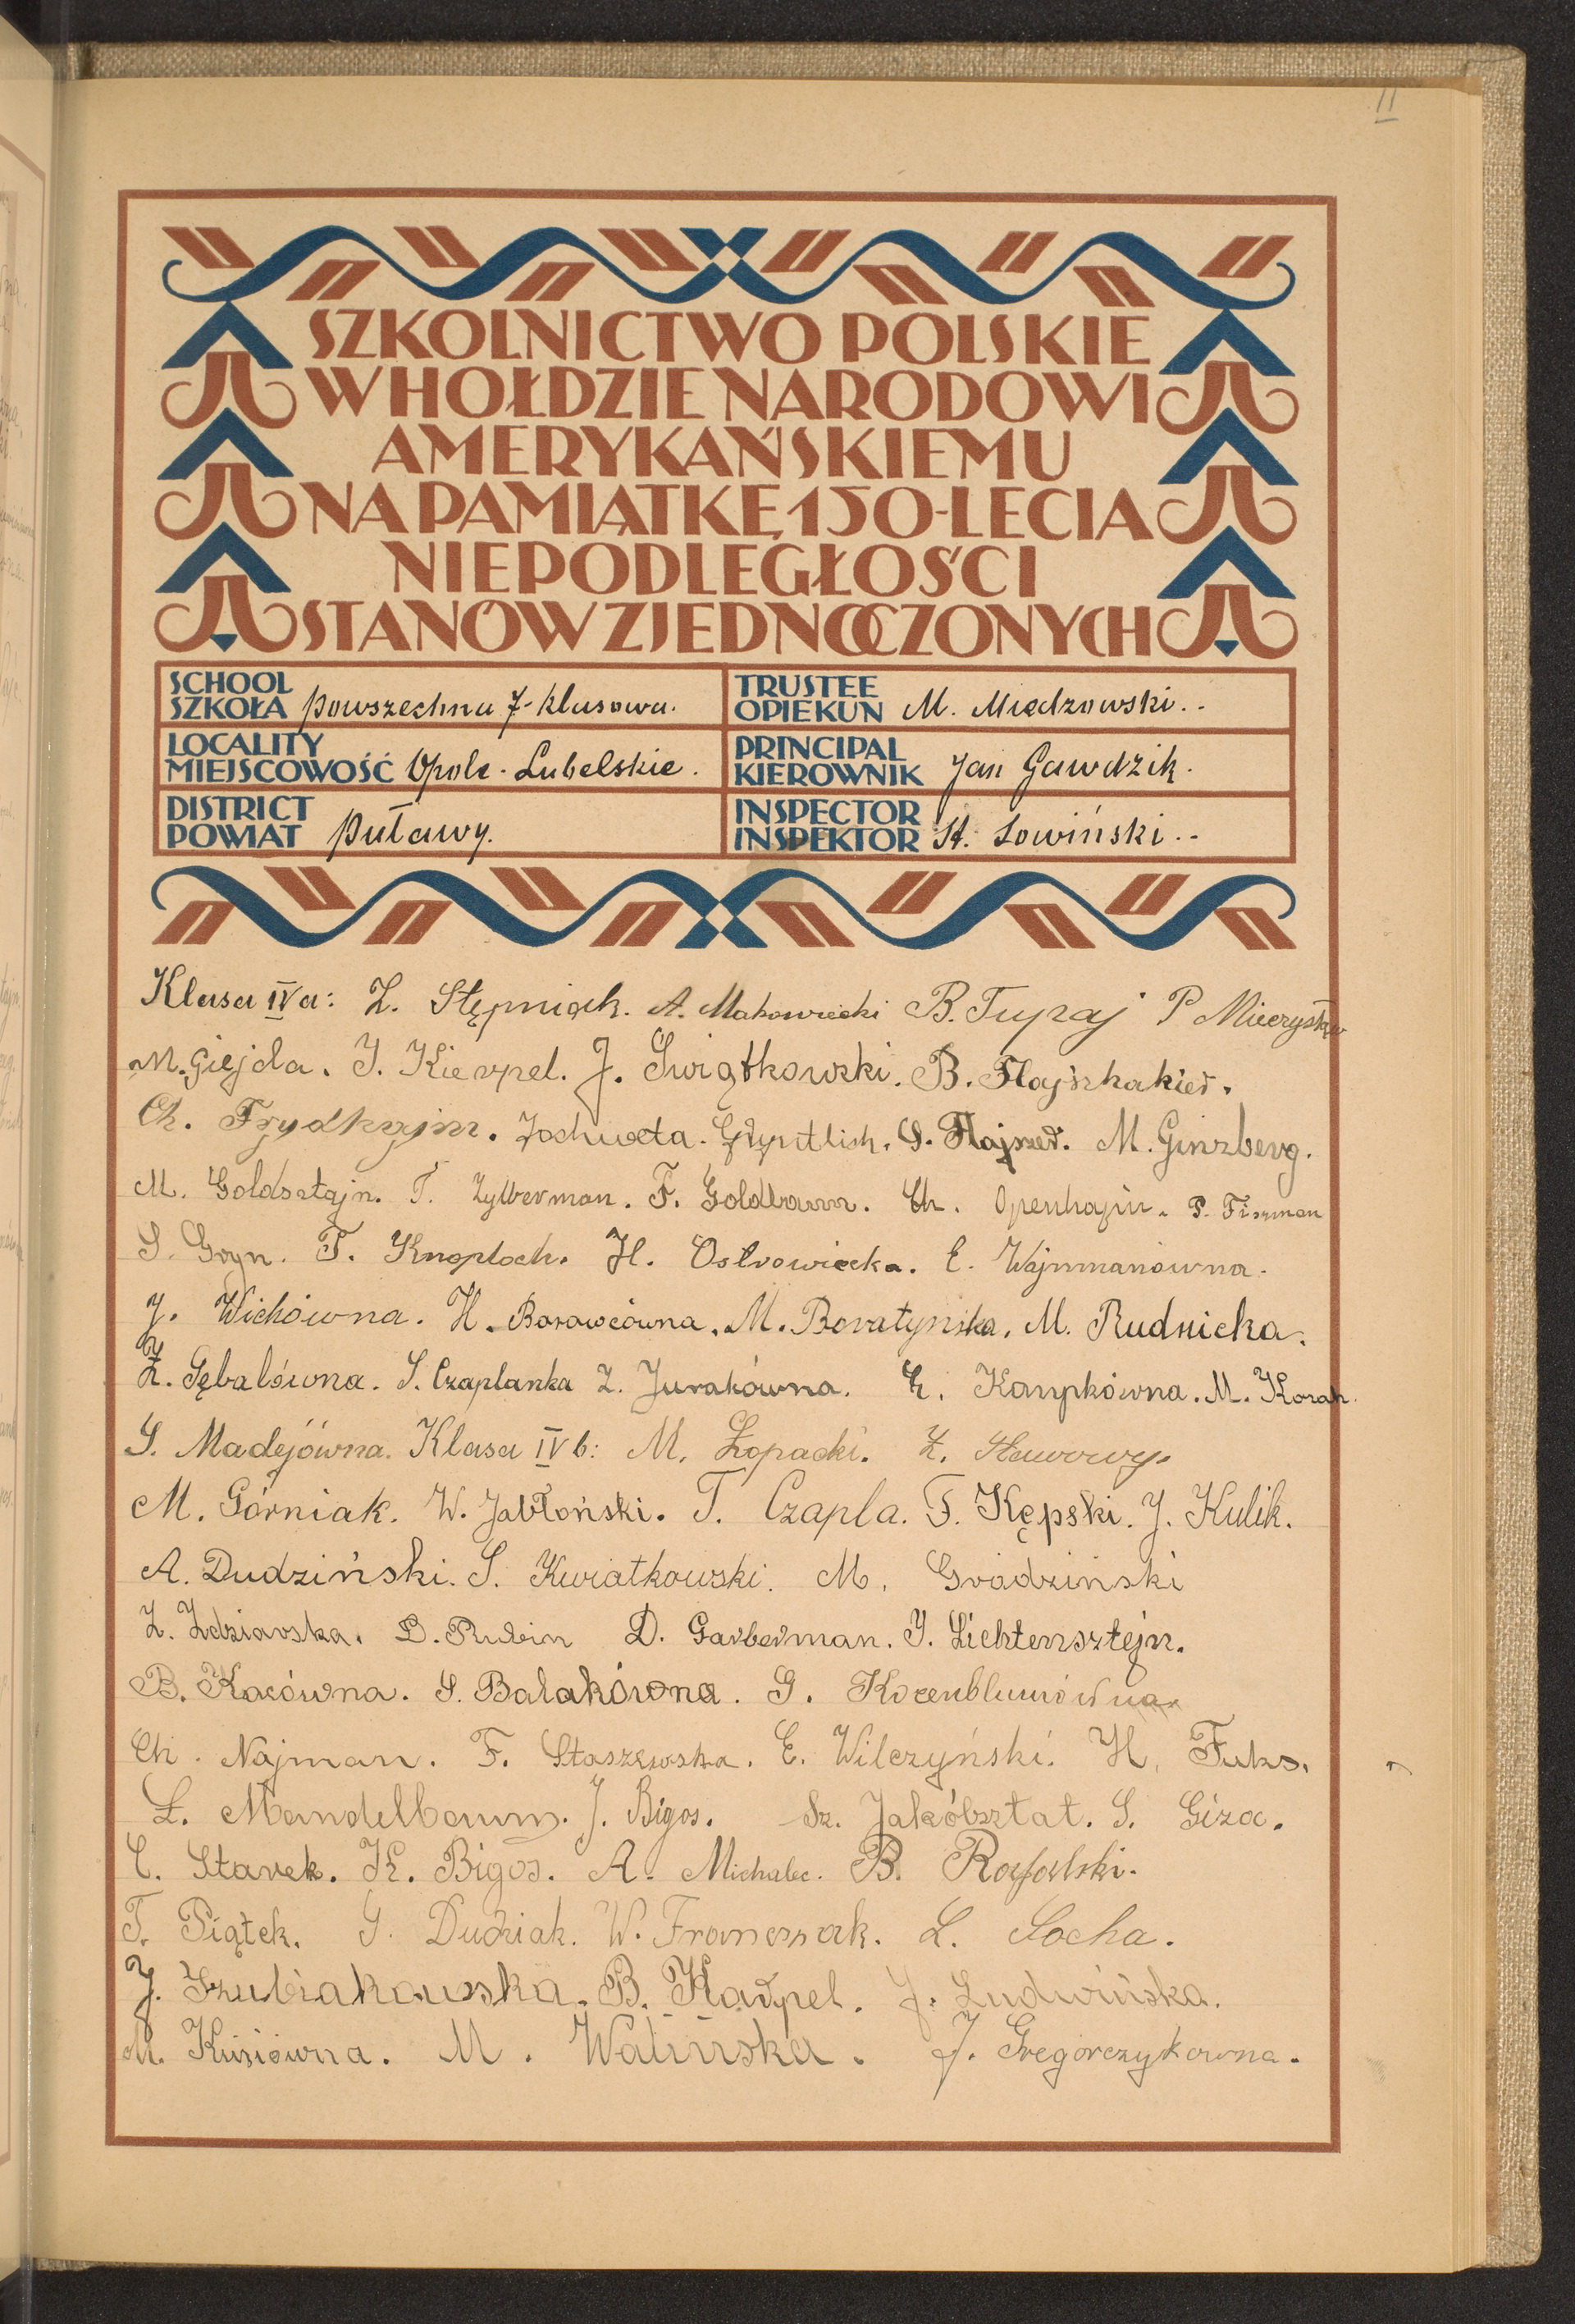 II
SZKOLNICTWO POLSKIE
W HOŁDZIE NARODOWI
AMERYKAŃSKIEMU
NA PAMIĄTKĘ 150-LECIA
NIEPODLEGŁOŚCI
STANÓW ZJEDNOCZONYCH
SCHOOL
SZKOŁA powszechna 7-klasowa.
TRUSTEE
OPIEKUN M. Miedzowski.
LOCALITY
MIEJSCOWOŚĆ Opole-Lubelskie.
PRINCIPAL
KIEROWNIK Jan Gawdzik.
DISTRICT
POWIAT Puławy.
INSPECTOR
INSPEKTOR St. Łowiński.
Klasa IVa: Z. Stępniak. A. Makowiecki B. Tupaj P Mieczysław
M. Giejda. J. Kierpel. J. Swiątkowski. B. Flajszhakier.
Ch. Frydhajm. S. Flajszer. M. Ginzberg.
M. Goldsztajn. T. Zylberman. F. Goldbaum. Ch. Openhajm. P. Fiszman
S. Gryn. T. Knoploch. H. Ostrowiecka. E. Wajnmanówna.
J. Wichówna. H. Barawcówna. M. Boratyńska. M. Rudnicka.
Z. Gębalówna. S. Czaplanka Z. Jurakówna. E. Kampkówna. M. Kozak
S. Madejówna. Klasa IV b: M. Łopacki. Z.
M. Górniak. W. Jabłoński. T. Czapla. F. Kępski. J. Kulik.
A. Dudziński. S. Kwiatkowski. M. Grodziński
Z. Zdziarska. D. Rubin D. Garberman. J. Lichtensztejn.
B. Kacówna. S. Balakówna. G. Rozenblumówna
Ch. Najman. F. Staszewska. E. Wilczyński. H. Fuks.
L. Mandelbaum. J. Bigos. Sz. Jakóbsztat. S. Giza.
C. Starek. K. Bigos. A. Michalec. B. Rafalski.
T. Piątek. J. Dudziak. W. Franczak. L. Socha.
J. Szubiakowska. B. Karpel. J. Ludwińska.
M. Kusiówna. M. Walińska. J. Gregorczykówna.